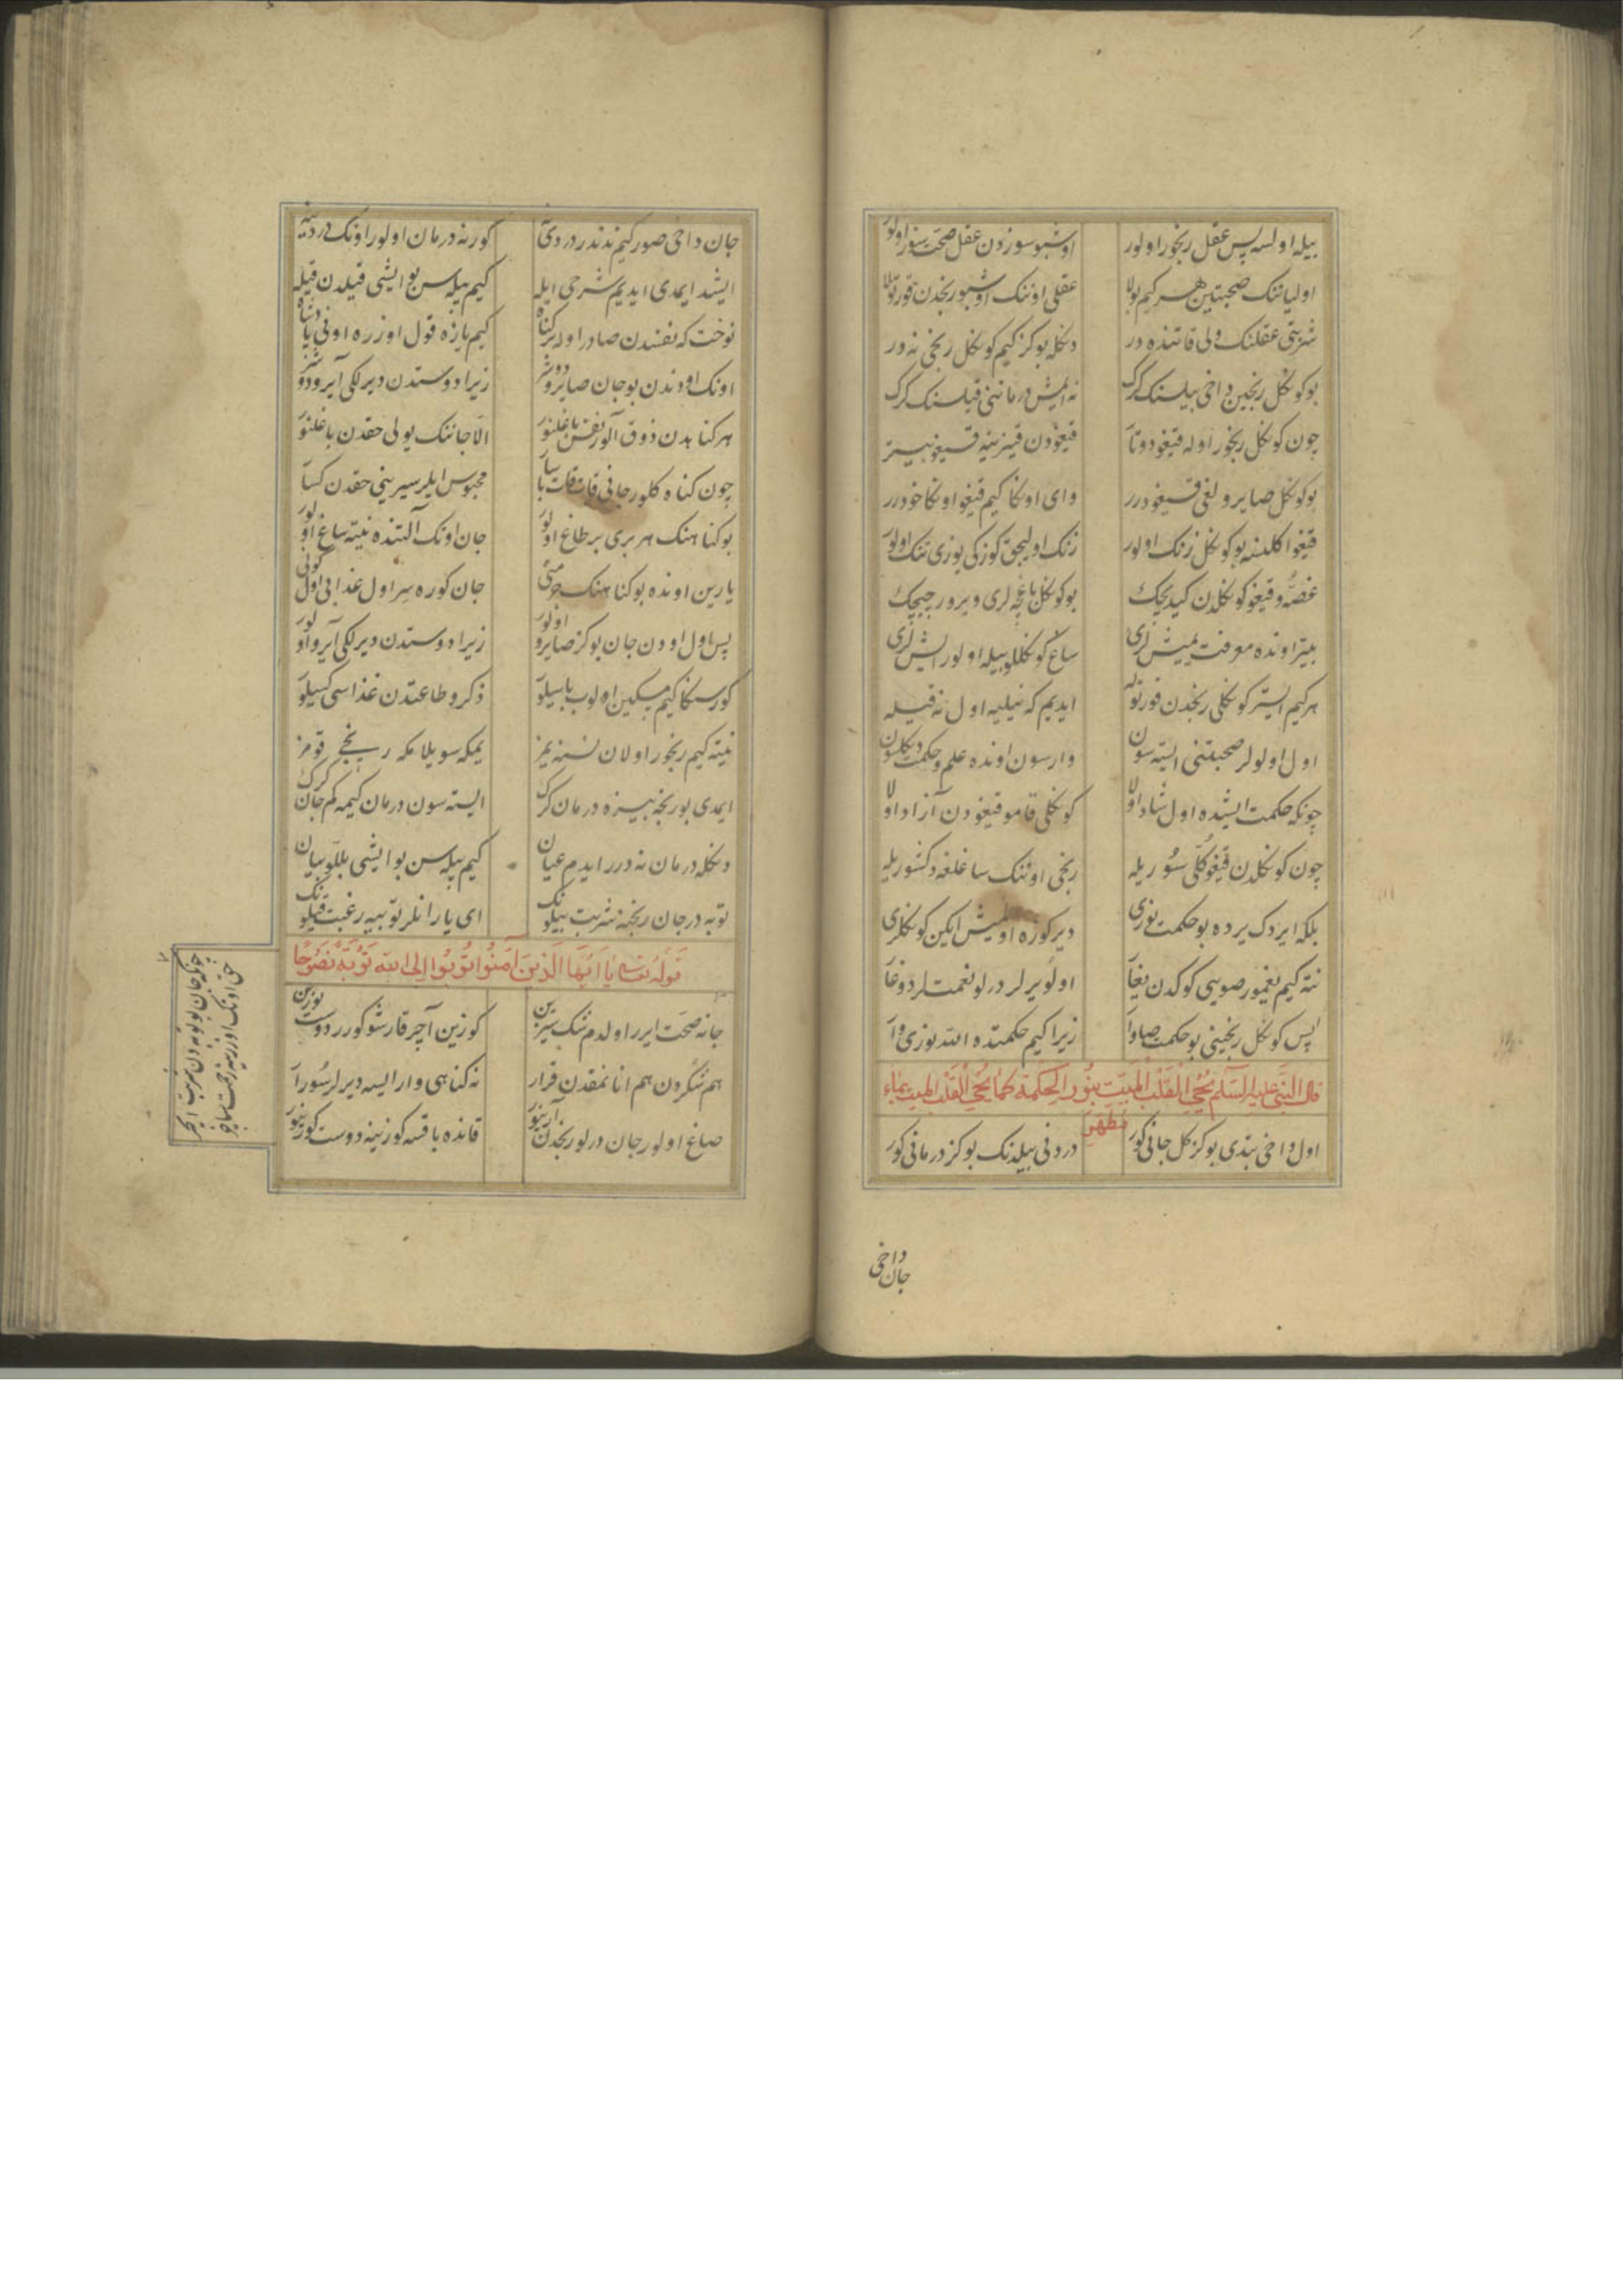 بیله اولسه پس عقل رنجور اولور اوشبو سوزدن عقل صحت سوز اولور
اولیاننک صحبتین هر کیم بولا عقلی اوننک اوشبو رنجدن قورتولا
شربتی عقلنک ولی قاتنده در دکله بو کز کیم کوکل رنجی نه در
بو کوکل رنجین داخی بیلسنک کرک نه ایمش درماننی قیلسنک کرک
چون کوکل رنجور اوله قیغو دوتا قیغودن
بو کوکل صایرولغی قیغودرر وای اوکا کیم قیغو اوکا خودرر
قیغو کلسه بو کوکل زنک اولور زنک اولیجق کوزکی یوزی تنک اولور
غصه و قیغو کوکلدن کیدیجک بو کوکل باغچه لری ویرور چیچک
بیتر اونده معرفت یمیش لری ساغ کوکللو بیله اولور ایش لری
هر کیم ایستر کوکلی رنجدن قورتوله ایدیم که نیلیه اول نه قیله
اول اولولر صحبتنی ایسته سون وارسون اونده علم و حکمت دکلسون
چونکه حکمت ایشیده اول شاد اولا کوکلی قامو قیغودن آزاد اولا
چون کوکلدن قیغو کلی سوریله رنجی اوننک ساغلغه دکشوریله
بلکه ایردک یرده بو حکمت نوری دیر کوره اولمیش ایکن کوکلری
نته کیم یغمور صویی کوکدن یغا اولو یرلر درلو نعمتلر دوغا
پس کوکل رنجینی بو حکمت صاوا زیرا کیم حکمتده الله نوری وا
قال النبی علیه السلام یحیی القلب المیت بنور الحکمة کما یحیی القلب المیت بماء
مطهر
اول داخی بتدی بو کز کل جانی کور دردونی بیلدنک بو کز درمانی کور
جان داخی
جان داخی صور کیم ندندر دردی کور نه درمان اولور اونک دردینه
ایشد ایمدی ایدیم شرحی ایله کیم بیله سن بو ایشی قیلدن قیله
نوخت که نفسدن صادر اوله کناه کیم یازه قول اوزره اونی پادشاه
اونک اودندن بو جان صایرو دوشر زیرا دوستدن دیرلکی آیرو دوشر
هر کناهدن ذوق آلور نفس باغلنور الا جاننک یولی حقدن باغلنور
چون کناه کلور جانی قات قات باسا محبوس ایلر سیرینی حقدن کسا
بو کناهنک هر بری بر طاغ اولور جان اونک آلتنده نیته ساغ اولور
یارین اونده بو کناهنک جان کوره سر اول عذابی اول کونی
پس اول اودن جان بو کز صایرو اولور زیرا دوستدن دیرلکی آیرو اولور
کورسکا کیم مسکین اولوب باسیلو ذکر و طاعتدن غذاسی کسیلو
نیته کیم رنجور اولان نسنه یمز یمکه سویلامکه رنجی قومز
ایمدی بو رنجه بیزه درمان کرک ایسته سون درمان کیمه کم جان کرک
دکله درمان نه درر ایدم عیان کیم بیله سن بو ایشی بللو بیان
توبه در جان رنجنه شربت بیلونک ای یارانلر توبه یه رغبت قیلونک
قوله تعالی یا ایها الذین آمنوا توبوا الی الله توبة نصوحا
جانه صحت ایرر اولدم کوزین آچر قارشو کورر دوست یوزین
هم شکردن هم انانمقدن قرار نه کناهی وار ایسه دیرلر سورا
صاغ اولور جان درلو رنجدن آرینور قانده باقسه کوزینه دوست کورینور
چونکه جان بو توبه دن شربت ایچر
حق اونک اوزرینه رحمت ساچر